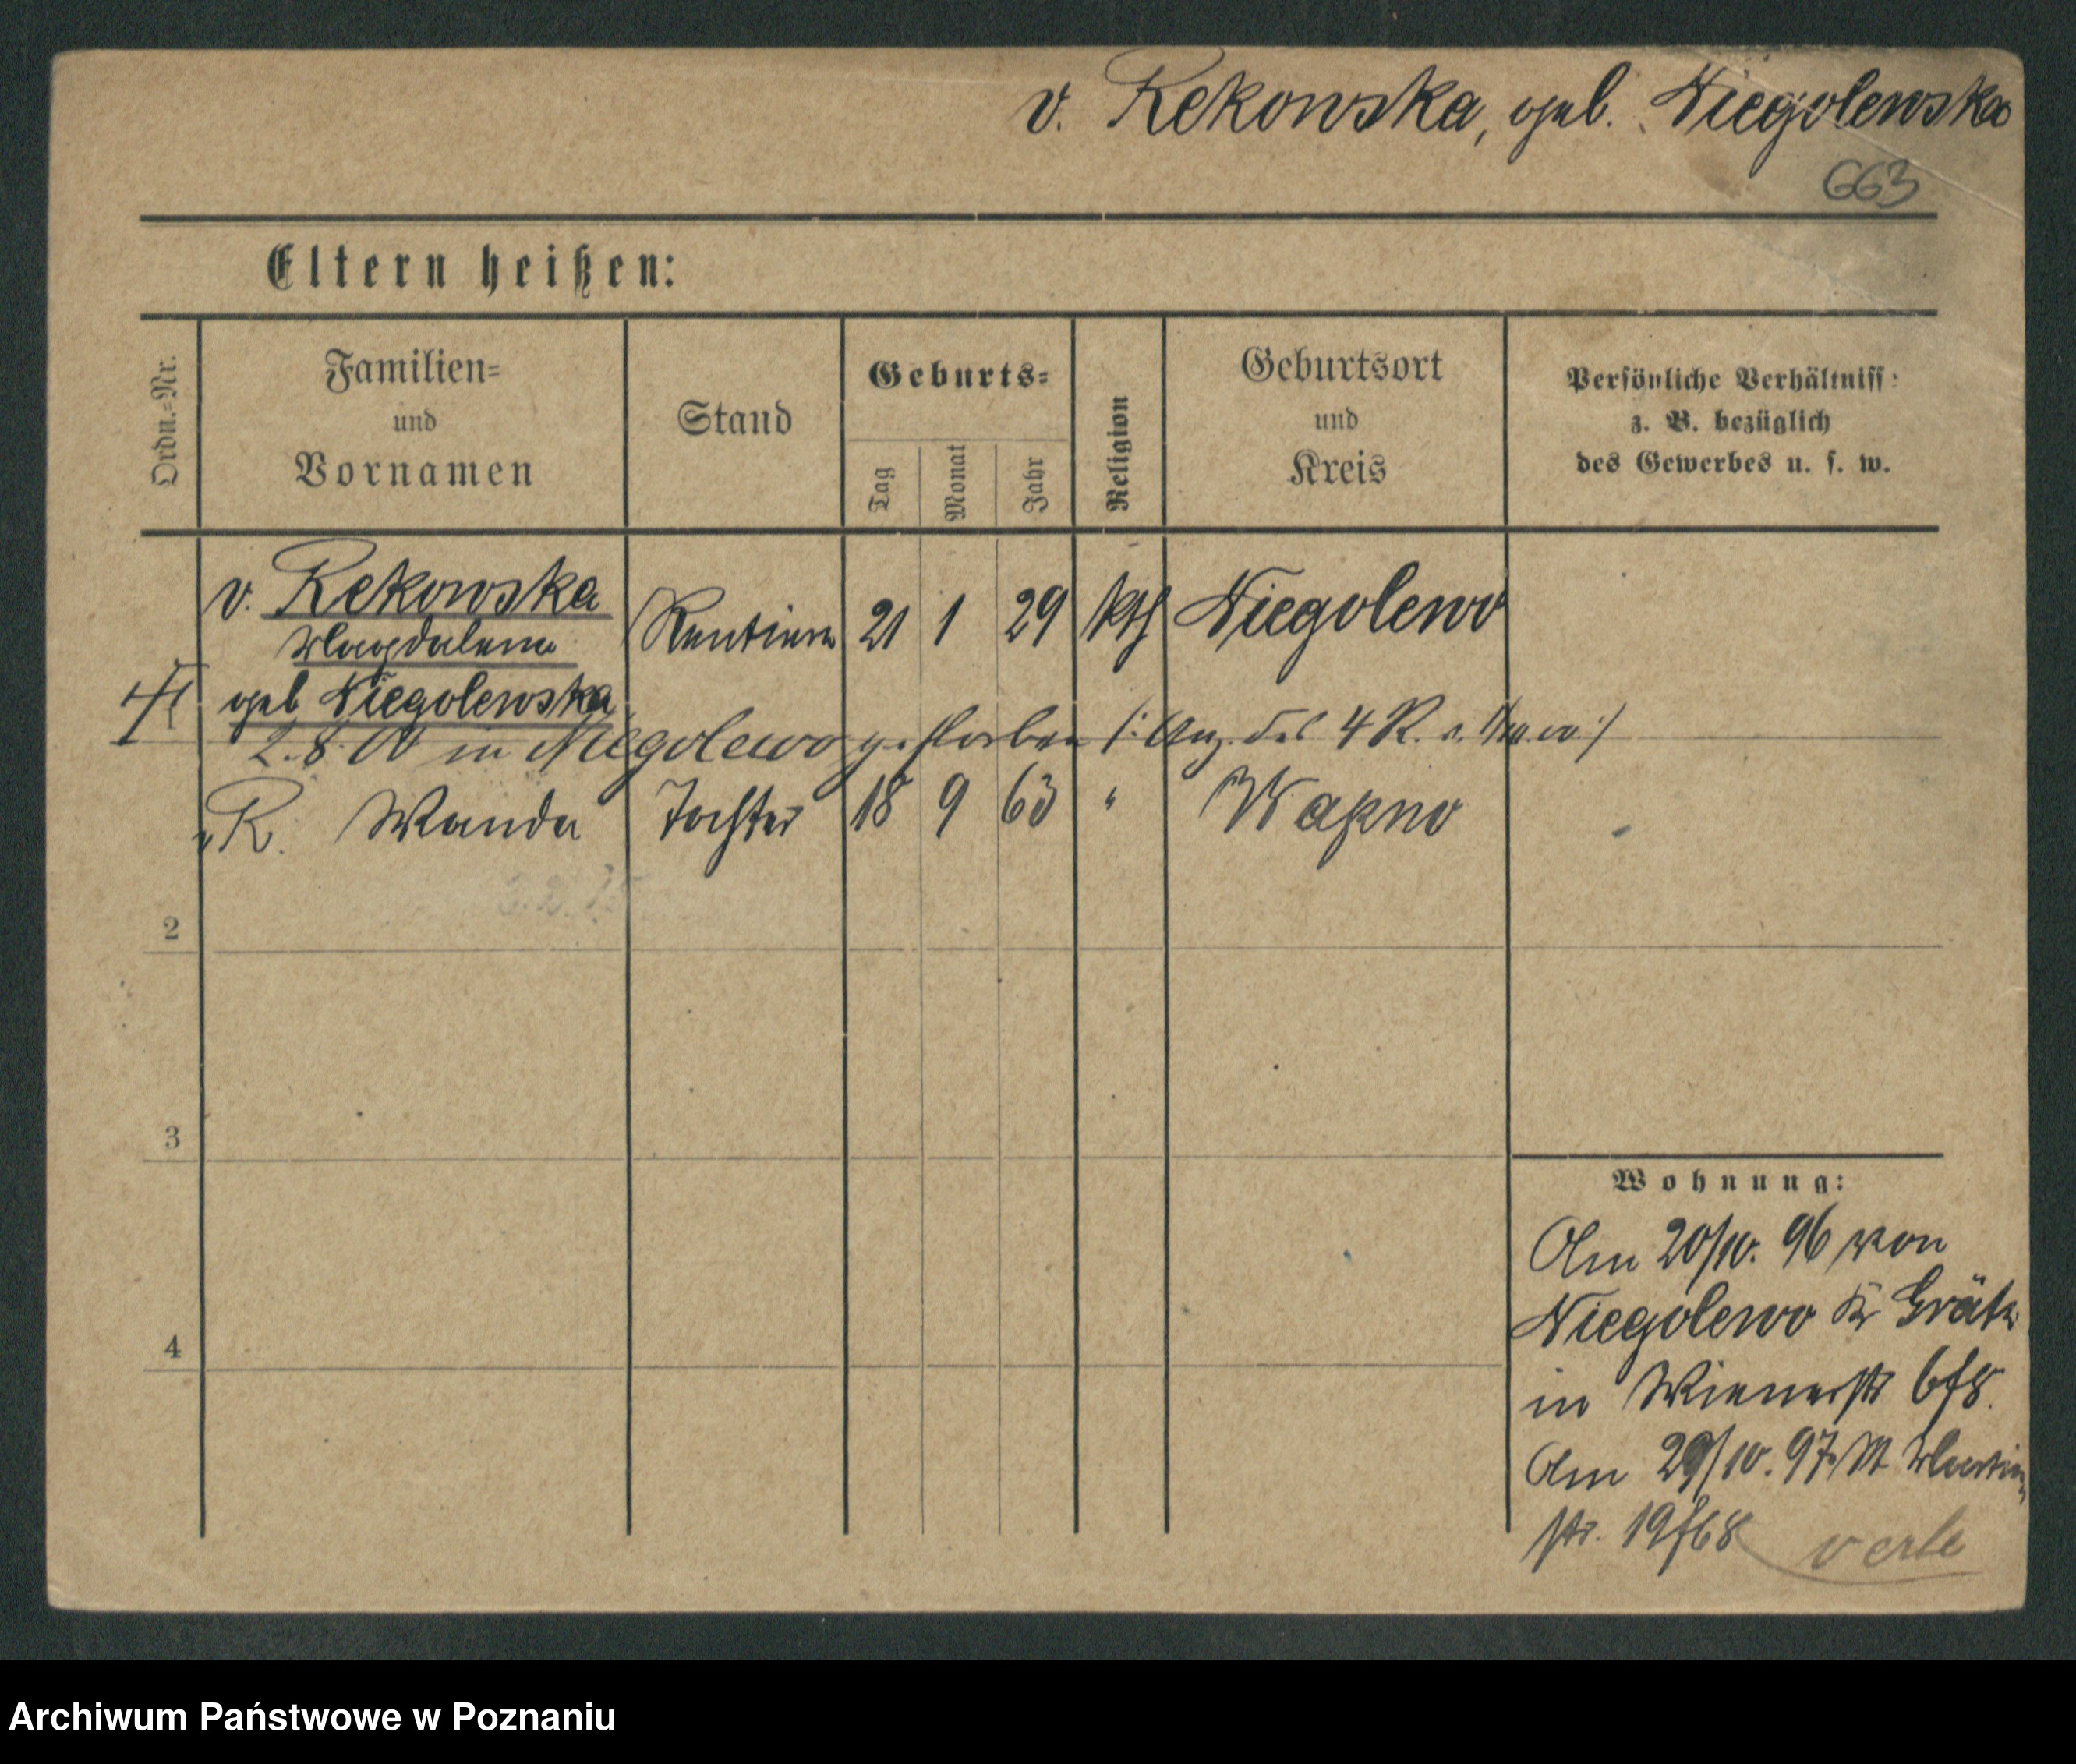 v. Rekowska, geb. Niegolewska
663
Eltern heißen:
Ordn.=Nr.
Familien=
und
Vornamen
Stand
Geburts=
Tag
Monat
Jahr
Religion
Geburtsort
und
Kreis
Persönliche Verhältniss:
z. B. bezüglich
des Gewerbes u. s. w.
v. Rekowska
Magdalena
geb Niegolewska
Rentiere 21 1 29 kth Niegolewo
2. 8. 00 in Niegolewo gestorben (: Anz. des 4 R.
v R. Wanda Tochter 18 9 63 " Wapno
2
3
4
Wohnung:
Am 20/10. 96 von
Niegolewo Kr Grätz
in Wienerstr 6f8.
Am 29/10. 97 St Martin
str. 19f68